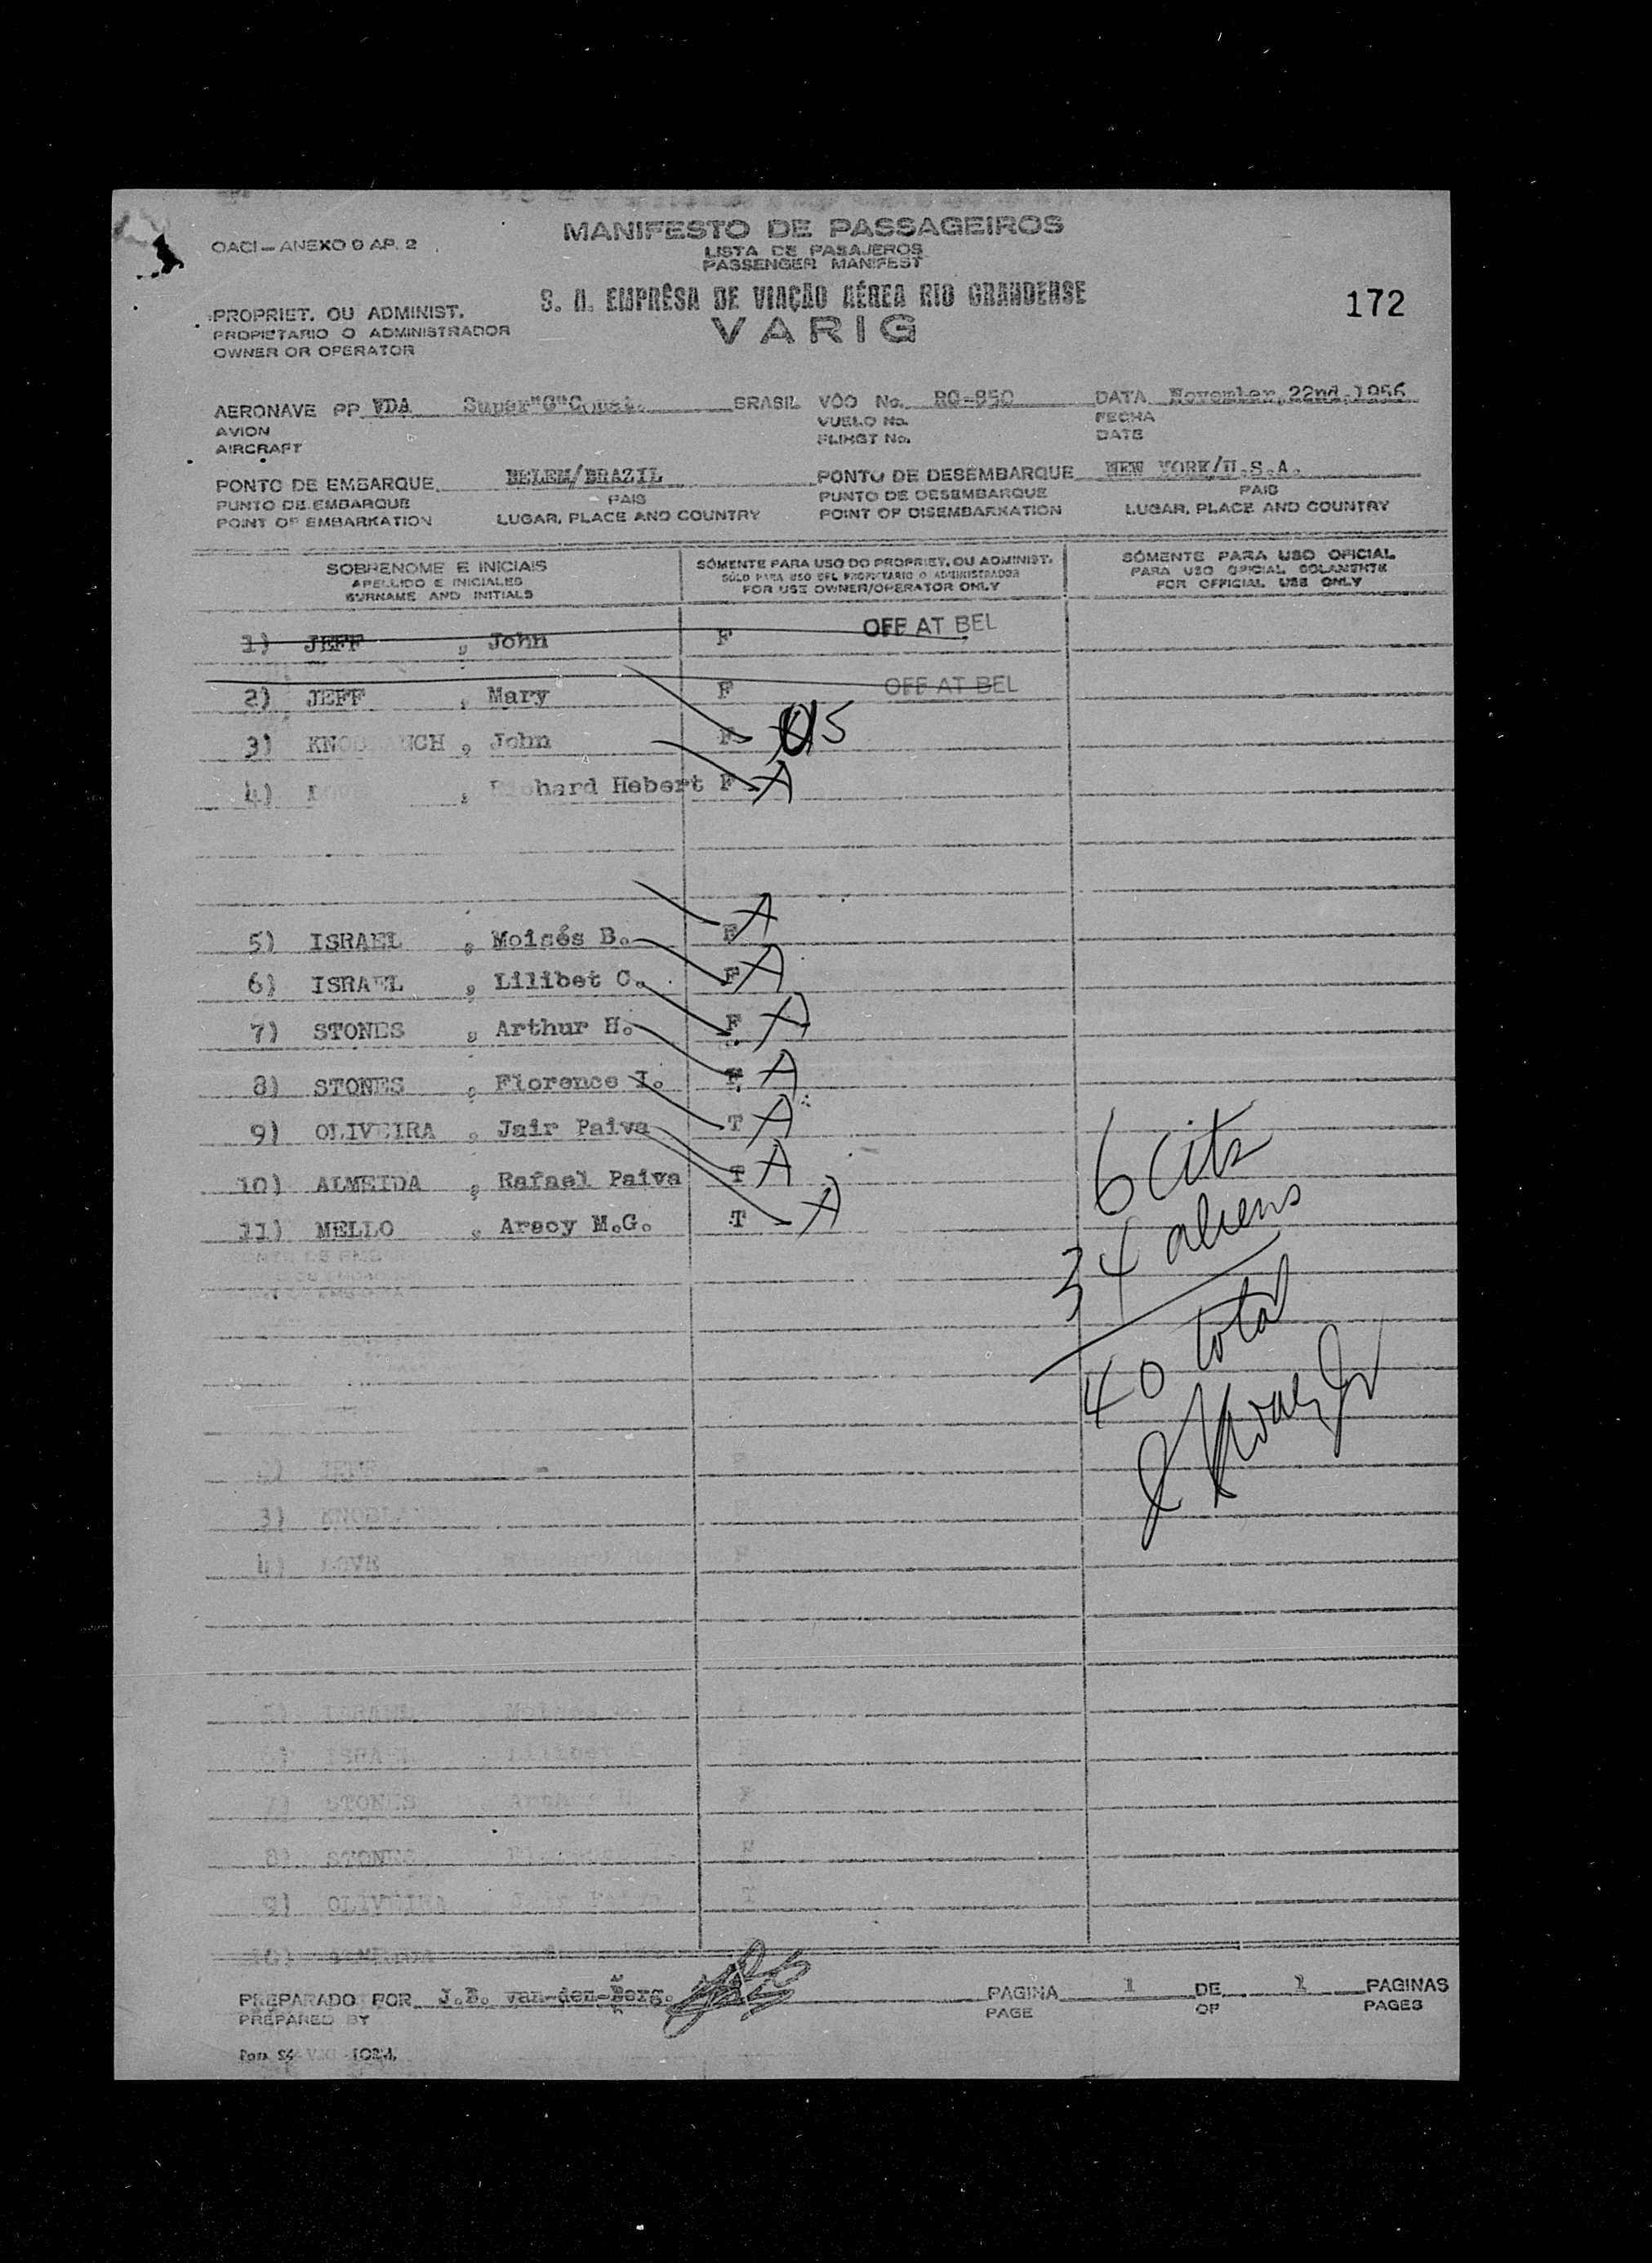 OACI — ANEXO 9 AP. 2
MANIFESTO DE PASSAGEIROS
LISTA DE PASAJEROS
PASSENGER MANIFEST
S. A. EMPRÊSA DE VIAÇÃO AÉREA RIO GRANDENSE
VARIG
172
PROPRIET. OU ADMINIST.
PROPIETARIO O ADMINISTRADOR
OWNER OR OPERATOR
AERONAVE PP VDA Super"G"Const. BRASIL VÔO No. RG-850 DATA November,22nd,1956
AVION VUELO No. FECHA
AIRCRAFT FLIHGT No. DATE
PONTO DE EMBARQUE BELEM/BRAZIL PONTO DE DESEMBARQUE NEW YORK/U.S.A.
PUNTO DE EMBARQUE PAIS PUNTO DE DESEMBARQUE PAIS
POINT OF EMBARKATION LUGAR, PLACE AND COUNTRY POINT OF DISEMBARKATION LUGAR, PLACE AND COUNTRY
SOBRENOME E INICIAIS SÓMENTE PARA USO DO PROPRIET. OU ADMINIST. SÓMENTE PARA USO OFICIAL
APELLIDO E INICIALES SÓLO PARA USO DEL PROPIETARIO O ADMINISTRADOR PARA USO OFICIAL SOLAMENTE
SURNAME AND INITIALS FOR USE OWNER/OPERATOR ONLY FOR OFFICIAL USE ONLY
1) JEFF , John F OFF AT BEL
2) JEFF , Mary F OFF AT BEL
3) KNOBLAUCH , John F US
4) LOVE , Richard Hebert F A
5) ISRAEL , Moisés B. F A
6) ISRAEL , Lilibet C. F A
7) STONES , Arthur H. F A
8) STONES , Florence I. F A
9) OLIVEIRA , Jair Paiva T A
10) ALMEIDA , Rafael Paiva T A
11) MELLO , Aracy M.G. T A
6 cits
34 aliens
40 total
2) JEFF
3) KNOBLAUCH
4) LOVE Richard Hebert F
5) ISRAEL Moisés B. F
6) ISRAEL Lilibet C. F
7) STONES Arthur H. F
8) STONES Florence I. F
9) OLIVEIRA Jair Paiva T
10) ALMEIDA
PREPARADO POR J.B. van-den-Berg. PAGINA 1 DE 1 PAGINAS
PREPARED BY PAGE OF PAGES